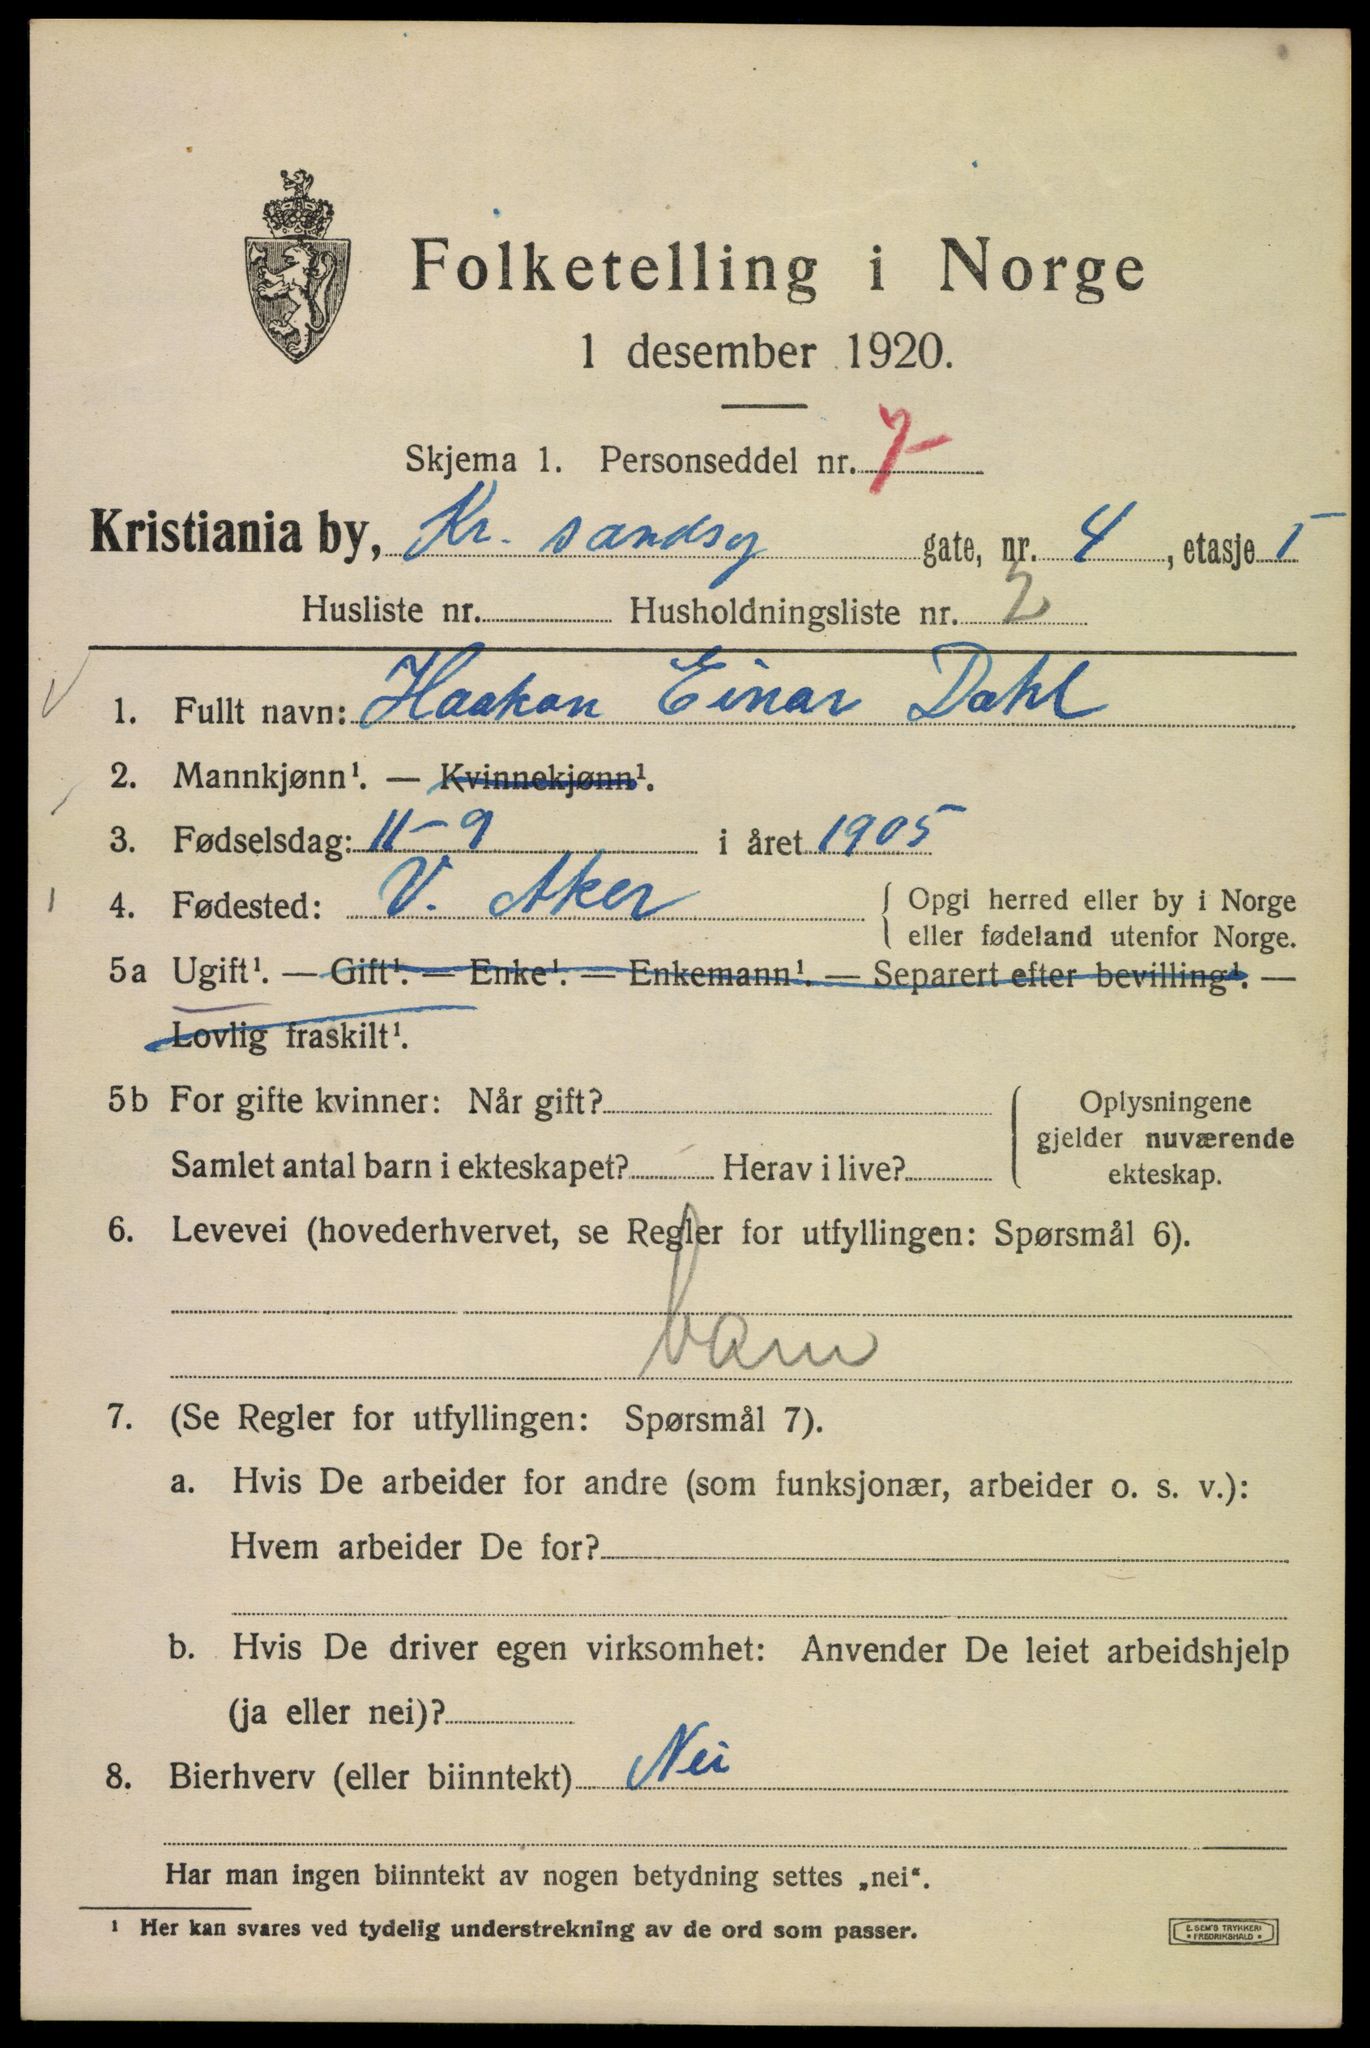 Folketelling i Norge
1 desember 1920.
Skjema 1. Personseddel nr. 7
Kristiania by, Kr. sandsg gate, nr. 4, etasje I
Husliste nr. Husholdningsliste nr. 2
1. Fullt navn: Haakon Einar Dahl
2. Mannkjønn¹. — Kvinnekjønn¹.
3. Fødselsdag: 11-9 i året 1905
4. Fødested: V. Aker { Opgi herred eller by i Norge
eller fødeland utenfor Norge.
5a Ugift¹. — Gift¹. — Enke¹. — Enkemann¹. — Separert efter bevilling¹. —
Lovlig fraskilt¹.
5b For gifte kvinner: Når gift?
Samlet antal barn i ekteskapet? Herav i live?
{ Oplysningene
gjelder nuværende
ekteskap.
6. Levevei (hovederhvervet, se Regler for utfyllingen: Spørsmål 6).
barn
7. (Se Regler for utfyllingen: Spørsmål 7).
a. Hvis De arbeider for andre (som funksjonær, arbeider o. s. v.):
Hvem arbeider De for?
b. Hvis De driver egen virksomhet: Anvender De leiet arbeidshjelp
(ja eller nei)?
8. Bierhverv (eller biinntekt) Nei
Har man ingen biinntekt av nogen betydning settes „nei“.
¹ Her kan svares ved tydelig understrekning av de ord som passer.
E. SEM'S TRYKKERI
• FREDRIKSHALD •